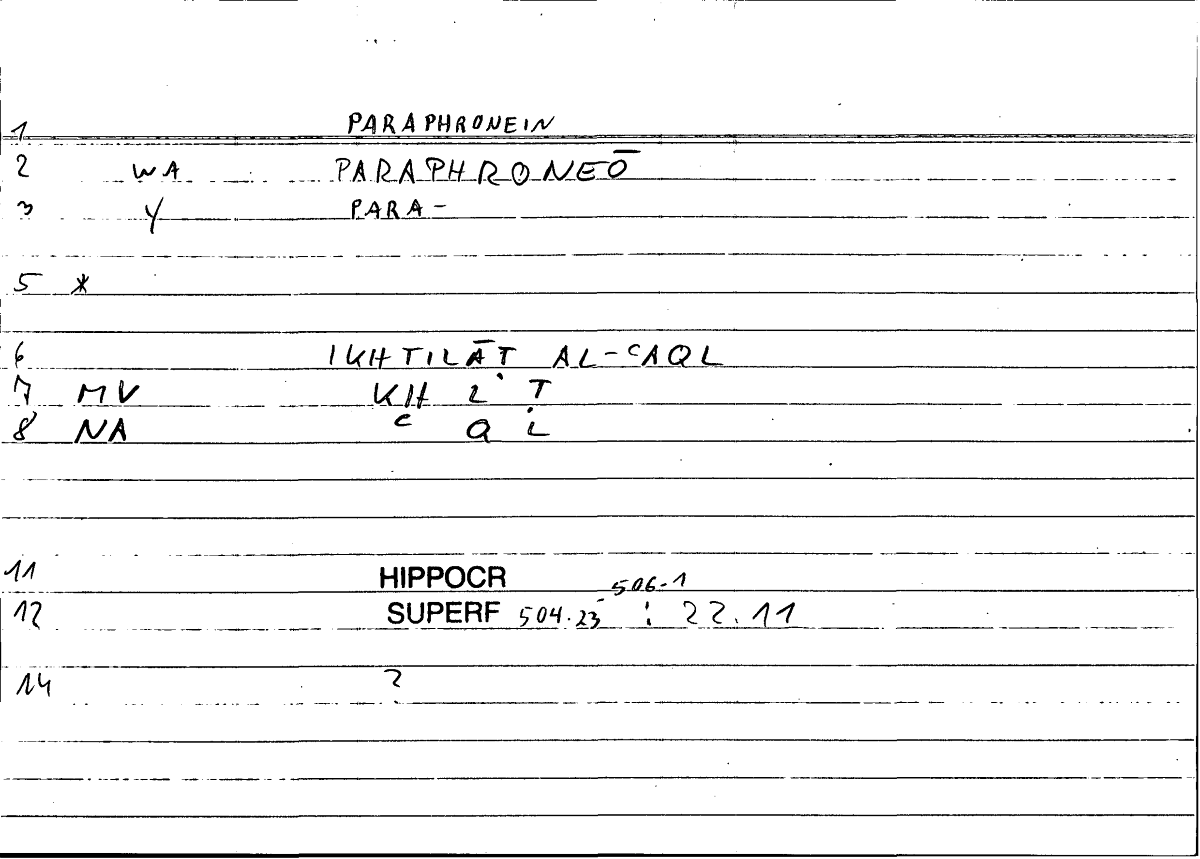 1 PARAPHRONEIN
2 WA PARAPHRONEŌ
3 Y PARA-
5 *
6 IKHTILĀṬ AL-ʿAQL
7 MV KH L Ṭ
8 NA ʿ Q L
11 HIPPOCR
12 SUPERF 504.23-506-1 : 22.11
14 ?